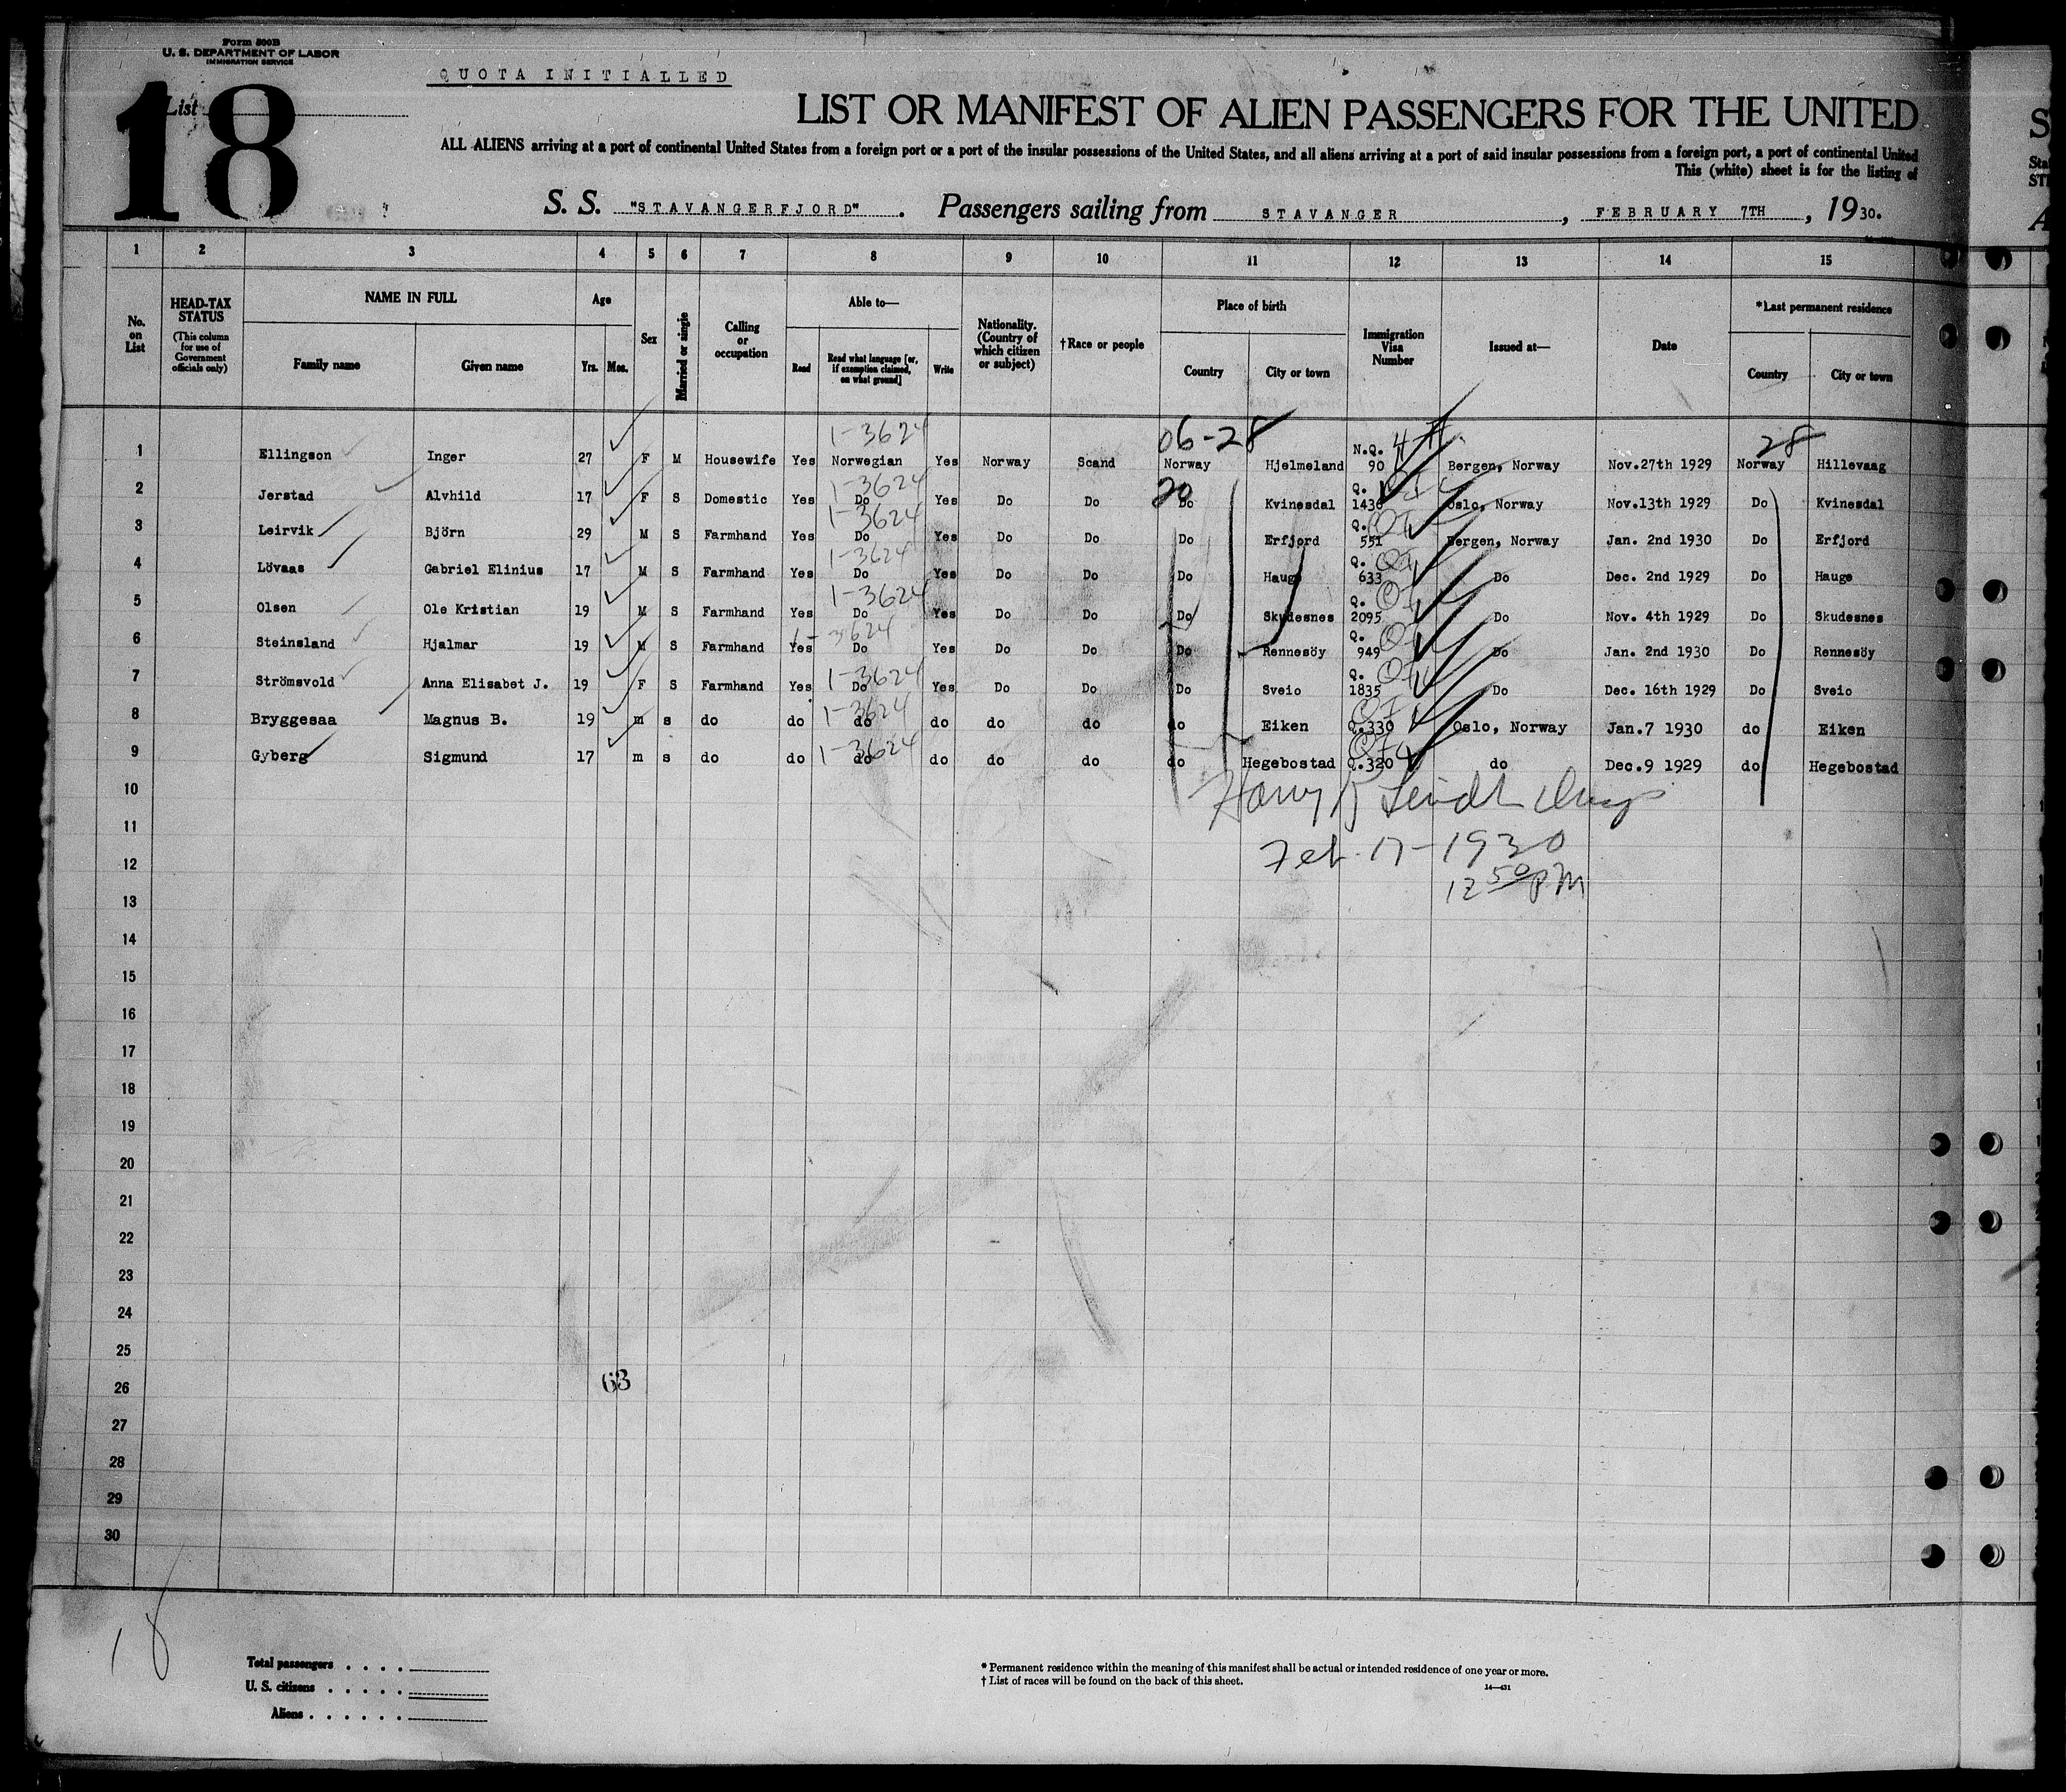 Form 500B
U. S. DEPARTMENT OF LABOR
IMMIGRATION SERVICE
QUOTA INITIALLED
List 18
LIST OR MANIFEST OF ALIEN PASSENGERS FOR THE UNITED
ALL ALIENS arriving at a port of continental United States from a foreign port or a port of the insular possessions of the United States, and all aliens arriving at a port of said insular possessions from a foreign port, a port of continental United
This (white) sheet is for the listing of
S. S. "STAVANGERFJORD". Passengers sailing from STAVANGER, FEBRUARY 7TH, 1930.
1 2 3 4 5 6 7 8 9 10 11 12 13 14 15
No. on List
HEAD-TAX STATUS (This column for use of Government officials only)
NAME IN FULL
Family name Given name
Age
Yrs. Mos.
Sex
Married or single
Calling or occupation
Able to—
Read Read what language [or, if exemption claimed, on what ground] Write
Nationality. (Country of which citizen or subject)
†Race or people
Place of birth
Country City or town
Immigration Visa Number
Issued at—
Date
*Last permanent residence
Country City or town
1-3624 06-28 28
1 Ellingson Inger 27 F M Housewife Yes Norwegian Yes Norway Scand Norway Hjelmeland N.Q. 90 Bergen, Norway Nov.27th 1929 Norway Hillevaag
1-3624 20
2 Jerstad Alvhild 17 F S Domestic Yes Do Yes Do Do Do Kvinesdal Q. 1436 Oslo, Norway Nov.13th 1929 Do Kvinesdal
1-3624
3 Leirvik Björn 29 M S Farmhand Yes Do Yes Do Do Do Erfjord Q. 551 Bergen, Norway Jan. 2nd 1930 Do Erfjord
1-3624
4 Lövaas Gabriel Elinius 17 M S Farmhand Yes Do Yes Do Do Do Hauge Q. 633 Do Dec. 2nd 1929 Do Hauge
1-3624
5 Olsen Ole Kristian 19 M S Farmhand Yes Do Yes Do Do Do Skudesnes Q. 2095 Do Nov. 4th 1929 Do Skudesnes
1-3624
6 Steinsland Hjalmar 19 M S Farmhand Yes Do Yes Do Do Do Rennesöy Q. 949 Do Jan. 2nd 1930 Do Rennesöy
1-3624
7 Strömsvold Anna Elisabet J. 19 F S Farmhand Yes Do Yes Do Do Do Sveio Q. 1835 Do Dec. 16th 1929 Do Sveio
1-3624
8 Bryggesaa Magnus B. 19 m s do do do do do do do Eiken Q.330 Oslo, Norway Jan.7 1930 do Eiken
1-3624
9 Gyberg Sigmund 17 m s do do do do do do do Hegebostad Q.320 do Dec.9 1929 do Hegebostad
10
11
Feb. 17-1930
12
12 50 PM
13
14
15
16
17
18
19
20
21
22
23
24
25
63
26
27
28
29
30
18
Total passengers
U. S. citizens
Aliens
* Permanent residence within the meaning of this manifest shall be actual or intended residence of one year or more.
† List of races will be found on the back of this sheet.
14—431